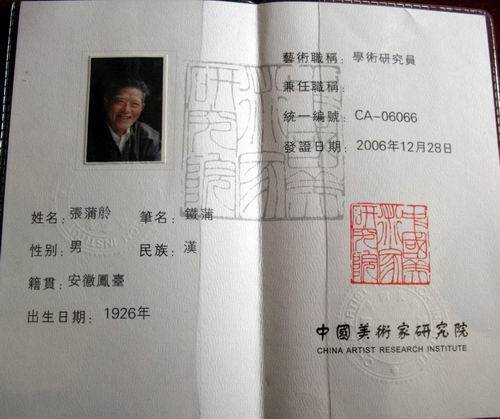 姓名:張蒲舲 筆名:鐵蒲
性別:男 民族:漢
籍貫:安徽鳳臺
出生日期:1926年
藝術職稱:學術研究員
兼任職稱:
統一編號:CA-06066
發證日期:2006年12月28日
中國美術家研究院
中國美術家研究院
CHINA ARTIST RESEARCH INSTITUTE